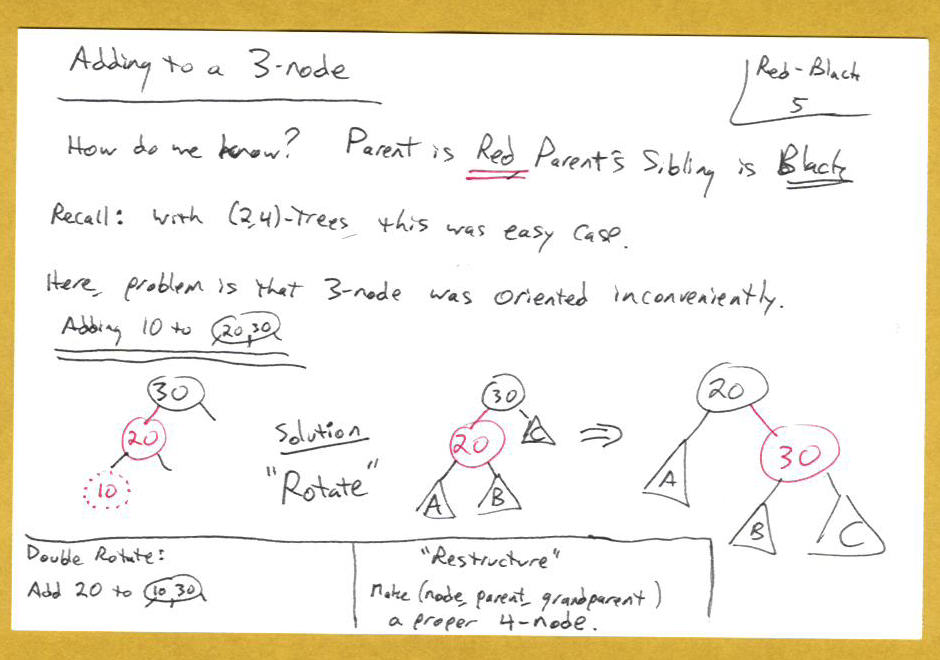 Adding to a 3-node
Red-Black
5
How do we know? Parent is Red Parent's Sibling is Black
Recall: with (2,4)-Trees, this was easy case.
Here, problem is that 3-node was oriented inconveniently.
Adding 10 to 20,30
30
20
10
Solution
"Rotate"
30
20
C
A
B
⇒
20
30
A
B
C
Double Rotate:
Add 20 to 10,30
"Restructure"
Make (node, parent, grandparent)
a proper 4-node.